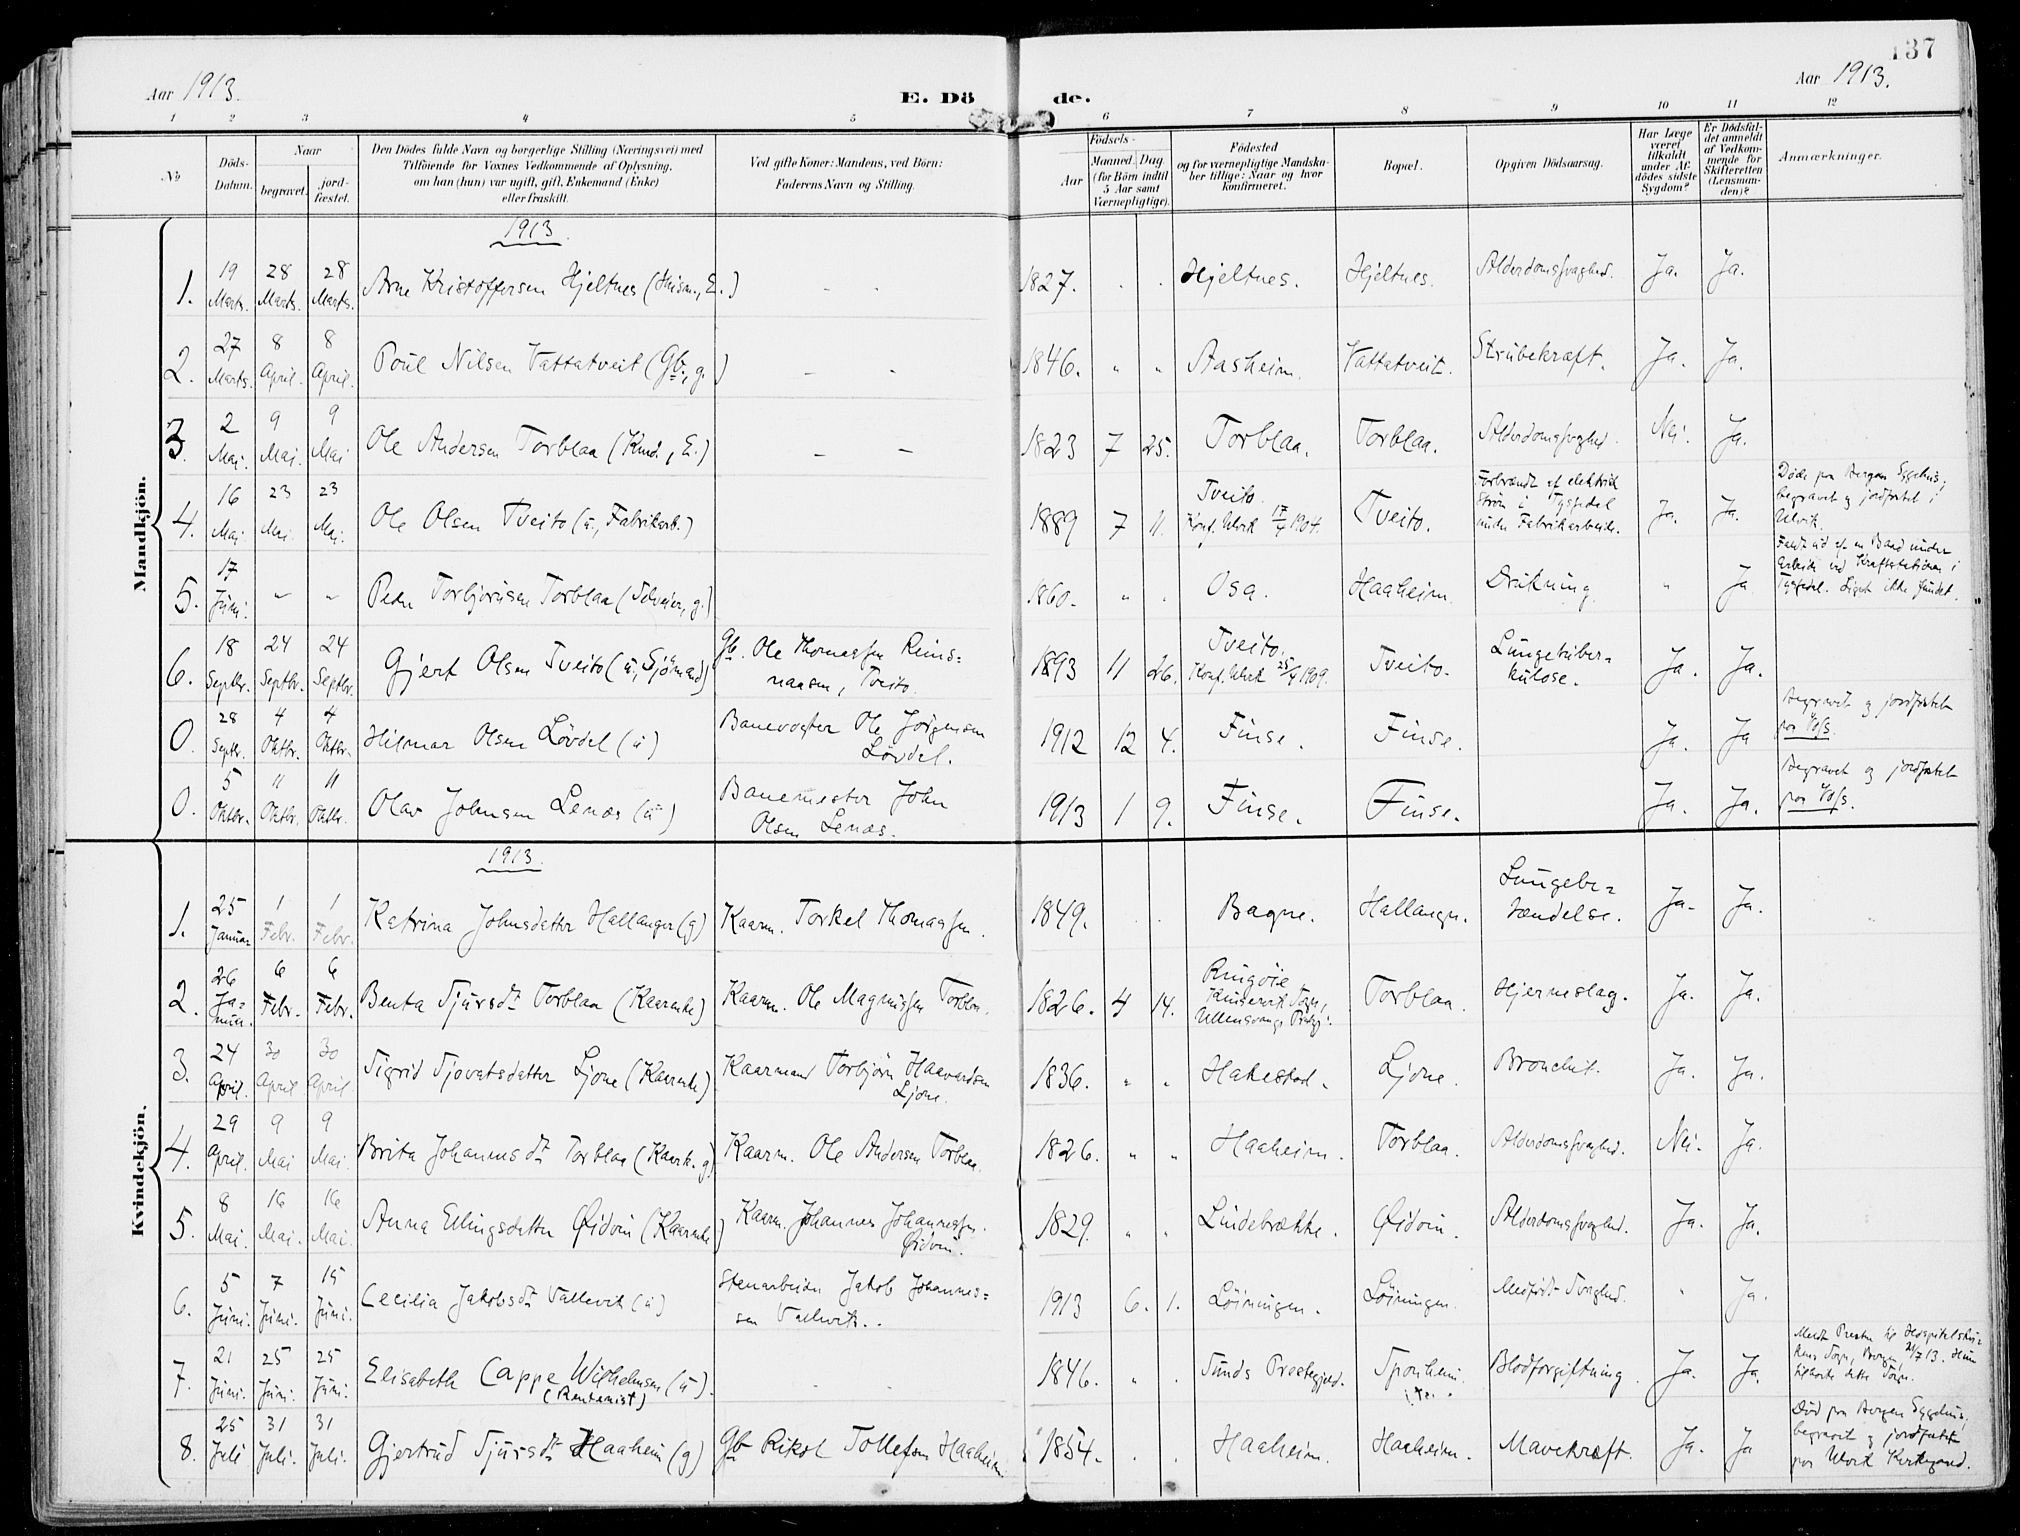 137
Aar 1913.
E. Döde.
Aar 1913.
1 2 3 4 5 6 7 8 9 10 11 12
No
Döds-Datum.
Naar
begravet.
jord-fæstet.
Den Dödes fulde Navn og borgerlige Stilling (Næringsvei) med
Tilföiende for Voxnes Vedkommende af Oplysning,
om han (hun) var ugift, gift, Enkemand (Enke)
eller fraskilt.
Ved gifte Koner: Mandens, ved Börn:
Faderens Navn og Stilling.
Födsels-
Aar
Maaned Dag
(for Börn indtil
5 Aar samt
Værnepligtige).
Födested
og for værnepligtige Mandska-
ber tillige: Naar og hvor
konfirmeret.
Bopæl.
Opgiven Dödsaarsag.
Har Læge
været
tilkaldt
under Af-
dödes sidste
Sygdom?
Er Dödsfal-
det anmeldt
af Vedkom-
mende for
Skifteretten
(Lensman-
den)?
Anmærkninger.
Mandkjön.
1913.
1. 19 Marts. 28 Marts. 28 Marts. Arne Kristoffersen Hjeltnes (Husm., E.) 1827. Hjeltnes. Hjeltnes. Alderdomssvaghed. Ja. Ja.
2. 27 Marts. 8 April. 8 April. Poul Nilsen Vattatveit (Gb., g.) 1846. " " Aasheim. Vattatveit. Strubekræft. Ja. Ja.
3. 2 Mai. 9 Mai. 9 Mai Ole Andersen Torblaa (E.) 1823 7 25. Torblaa. Torblaa. Alderdomssvaghed. Nei. Ja.
4. 16 Mai. 23 Mai. 23 Mai. Ole Olsen Tveito (u., Fabrikarb.) 1889 7 11. Tveito. Konf. Ulvik 17/4 1904. Tveito. Forbrændt af elektrisk Strøm i Tyssedal under Fabrikarbeide. Ja. Ja. Døde paa Bergens Sygehus; begravet og jordfæstet i Ulvik.
5. 17 Juni. – – Peder Torbjørnsen Torblaa (g.) 1860. " . Osa. Haaheim. Drukning. " Ja Faldt ud af en Baad under Arbeide ved Kraftstationen i Tyssedal. Liget ikke fundet.
6. 18 Septbr. 24 Septbr. 24 Septbr. Gjert Olsen Tveito (u., Sjömand) Gb. Ole Thomassen Reins=naasen, Tveito. 1893 11 26. Tveito. Konf. Ulvik 25/4 1909. Tveito. Lungetuber=kulose. Ja. Ja.
0. 28 Septbr. 4 Oktbr. 4 Oktbr. Hilmar Olsen Lövdel (u) Banevogter Ole Jørgensen Lövdel. 1912 12 4. Finse. Finse. Ja. Ja Begravet og jordfæstet paa Voss.
0. 5 Oktbr. 11 Oktbr. 11 Oktbr. Olav Johnsen Lenæs (u) Banemester John Olsen Lenæs. 1913 1 9. Finse. Finse. Ja. Ja. Begravet og jordfæstet paa Voss.
Kvindekjön.
1913.
1. 25 Januar 1 Febr. 1 Febr. Katrina Johnsdatter Hallanger (g) Kaarm. Torkel Thomassen. 1849. Bagne. Hallanger. Lungebe=tændelse. Ja. Ja.
2. 26 Ja=nuar. 6 Febr. 6 Febr. Benta Sjursdt. Torblaa (Kaarenke) Kaarm. Ole Magnussen Torblaa. 1826. 4 14. Ringøie Kinservik Sogn, Ullensvangs Prstgj. Torblaa. Hjerneslag. Ja. Ja.
3. 24 April. 30 April 30 April Sigrid Sjovatsdatter Ljone (Kaarenke) Kaarmand Torbjörn Haavardsen Ljone. 1836. " " Hakestad. Ljone. Bronchit. Ja. Ja.
4. 29 April. 9 Mai 9 Mai. Brita Johannesdt. Torblaa (Kaark. g) Kaarm. Ole Andersen Torblaa. 1826. " " Haaheim. Torblaa. Alderdomssvaghed. Nei. Ja.
5. 8 Mai. 16 Mai. 16 Mai. Anna Ellingsdatter Øidvin (Kaarenke) Kaarm. Johannes Johannessen. Øidvin. 1829. " " Lindebrække. Øidvin. Alderdomssvaghed. Ja. Ja.
6. 5 Juni. 7 Juni. 15 Juni. Cecilia Jakobsdt. Vallevik (u) Stenarbeider Jakob Johannes=sen Vallevik. 1913 6. 1. Löiningen. Löiningen. Medfødt Svaghed. " Ja.
7. 21 Juni. 25 Juni. 25 Juni. Elisabeth Cappe Wilhelmsen (u). (Rentenist) 1846. " . Sunds Prestegjeld. Sponheim. Blodforgiftning. Ja. Ja. Meldt Presten til Hospitalskirkens Sogn, Bergen, 21/7 13. Hun tilhørte dette Sogn.
8. 25 Juli 31 Juli. 31 Juli. Gjertrud Sjursdt. Haaheim (g) Gb. Rikol Tollefsen Haaheim 1854. Haaheim. Haaheim. Mavekræft. Ja. Ja Død paa Bergens Sygehus, begravet og jordfæstet paa Ulvik Kirkegaard.